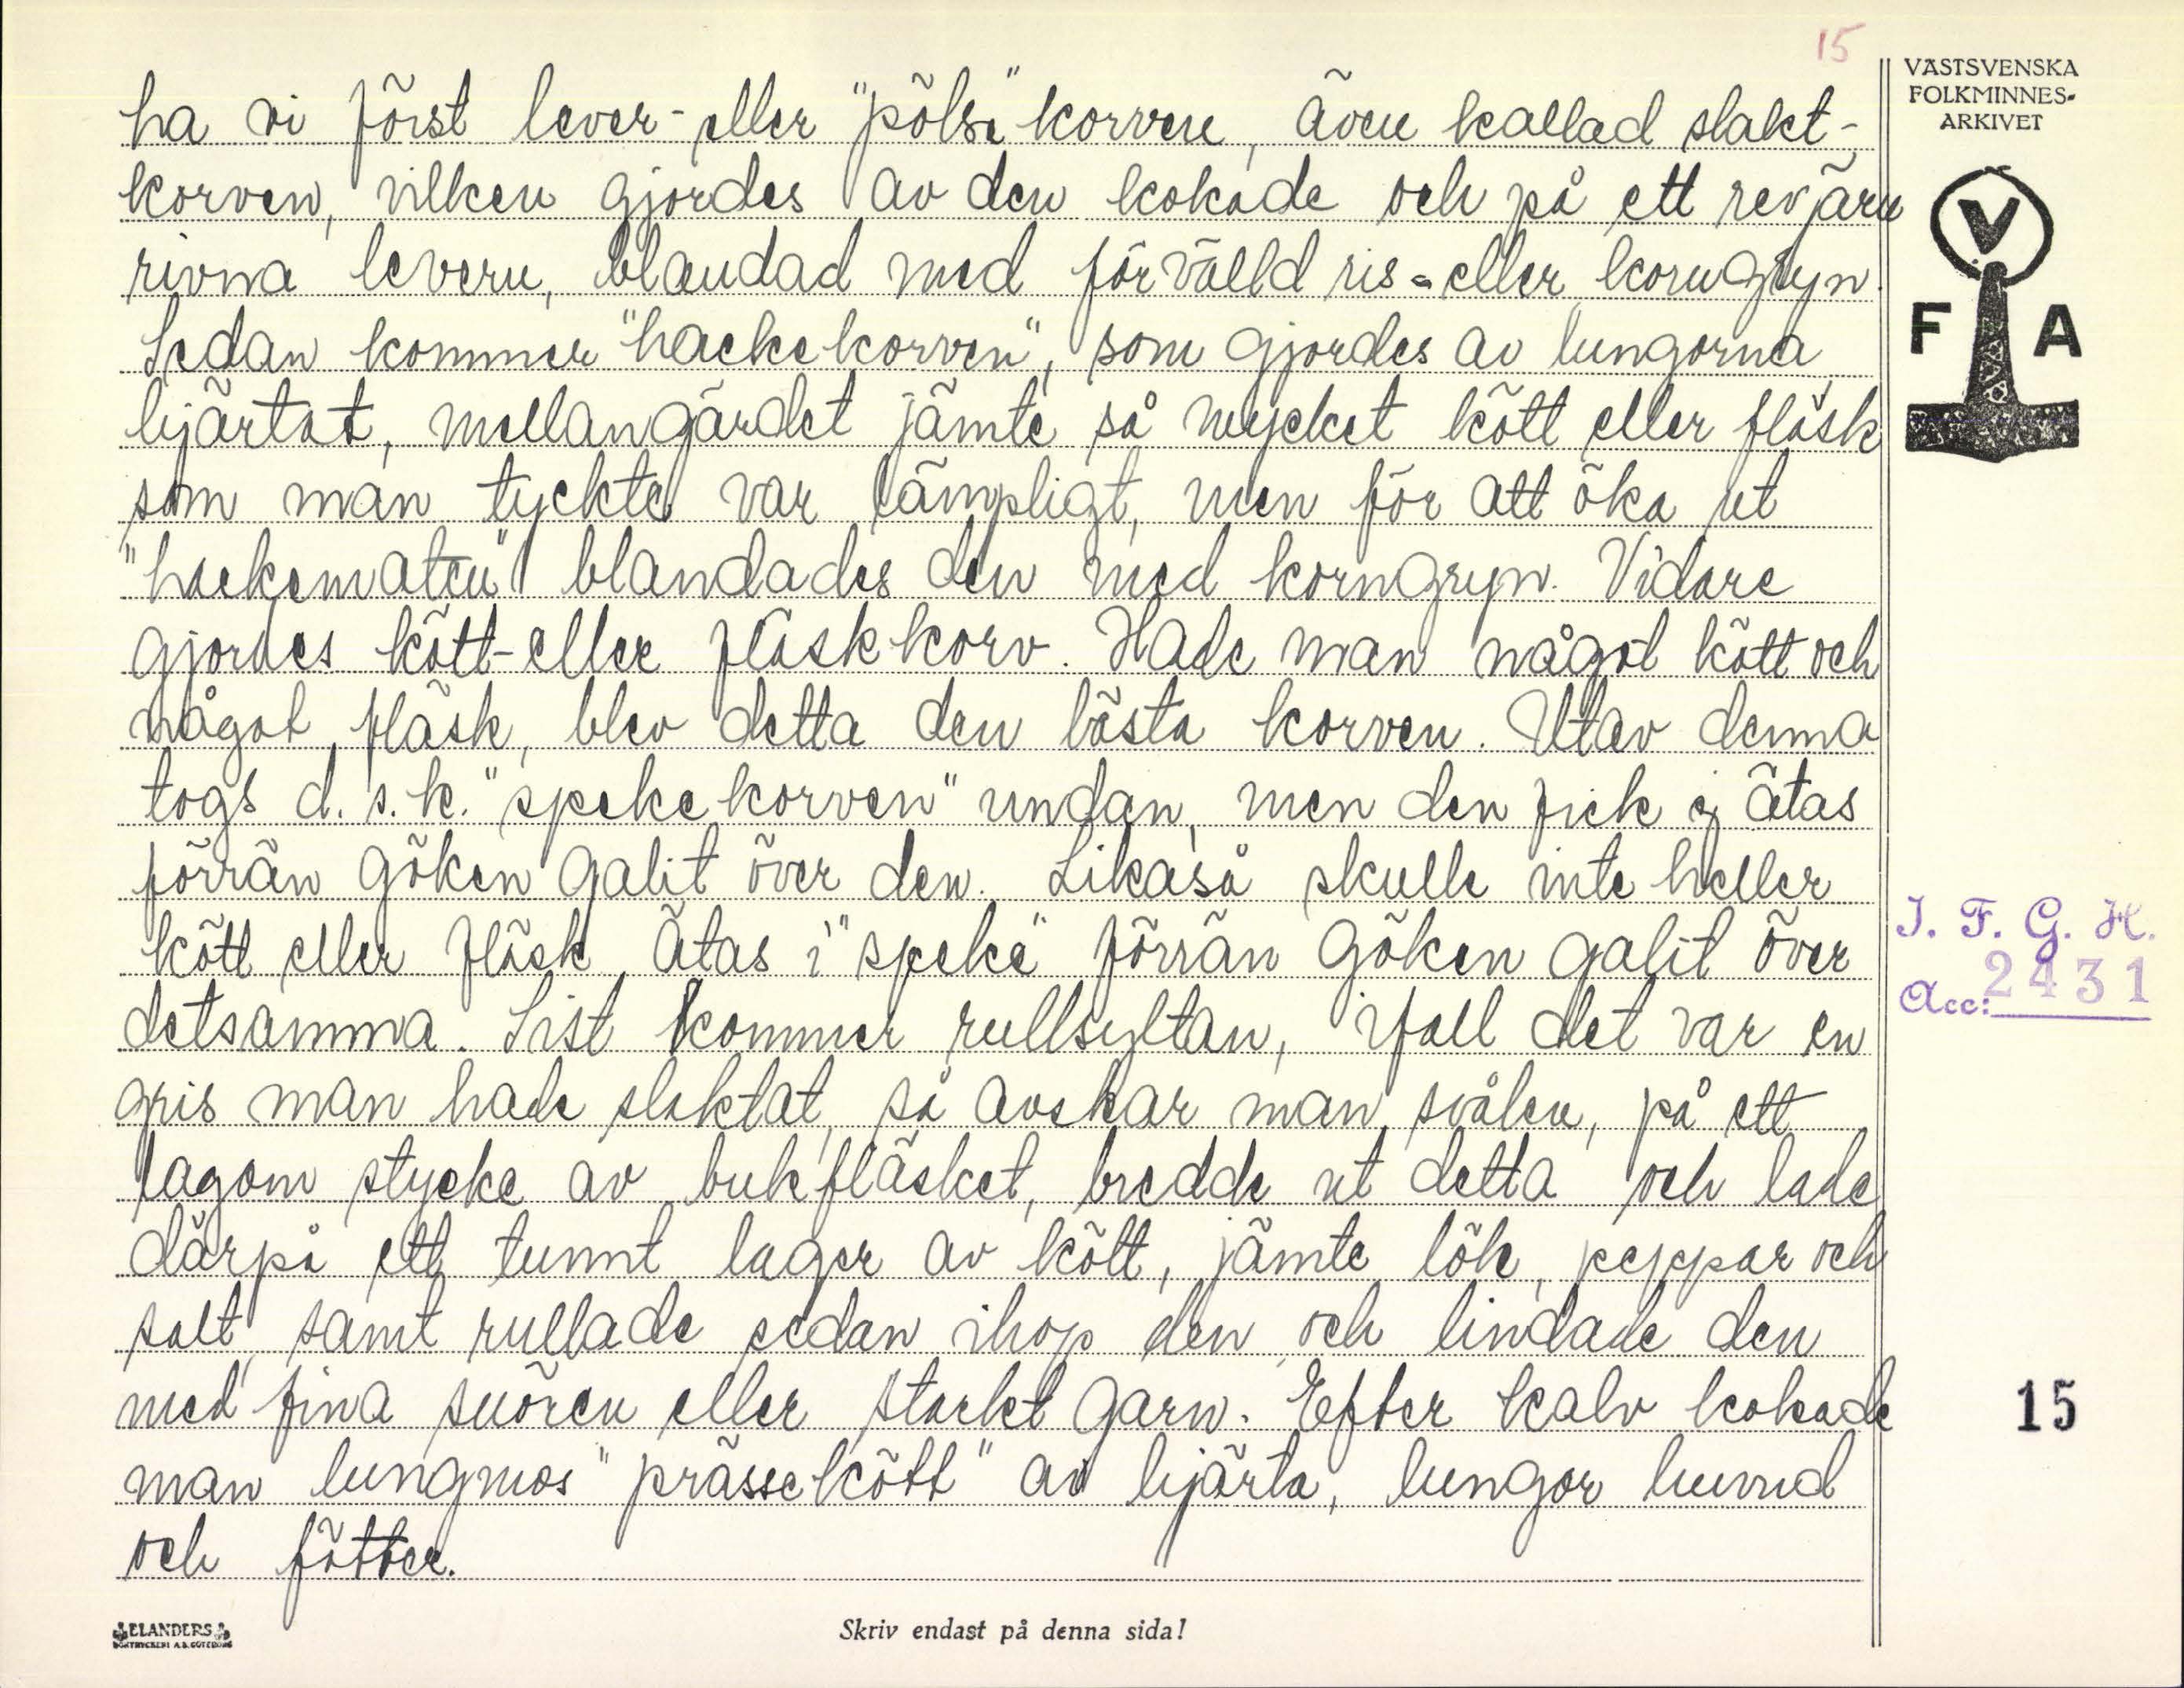 15
VÄSTSVENSKA
FOLKMINNES-
ARKIVET
V
F A
ha vi först lever- eller "pölse" korven, även kallad slakt-
korven, vilken gjordes av den kokade och på ett revjärn
rivna levern, blandad med förvälld ris- eller korngryn.
Sedan kommer "hackekorven", som gjordes av lungorna,
hjärtat, mellangärdet jämte så mycket kött eller fläsk
som man tyckte var lämpligt, men för att öka ut
"hackematen" blandades den med korngryn. Vidare
gjordes kött- eller fläskkorv. Hade man något kött och
något fläsk, blev detta den bästa korven. Utav denna
togs d. s. k. "spekekorven" undan, men den fick ej ätas
förrän göken galit över den. Likaså skulle inte heller
kött eller fläsk ätas i "speke" förrän göken galit över
detsamma. Sist kommer rullsyltan, ifall det var en
gris man hade slaktat, så avskar man svålen, på ett
lagom stycke av bukfläsket, bredde ut detta och lade
därpå ett tunnt lager av kött, jämte lök, peppar och
salt, samt rullade sedan ihop den och lindade den
med fina snören eller starkt garn. Efter kalv kokade
man lungmos "prässekött" av hjärta, lungor huvud
och fötter.
I. F. G. H.
Acc: 2431
15
ELANDERS
BOKTRYCKERI A.B. GÖTEBORG
Skriv endast på denna sida!